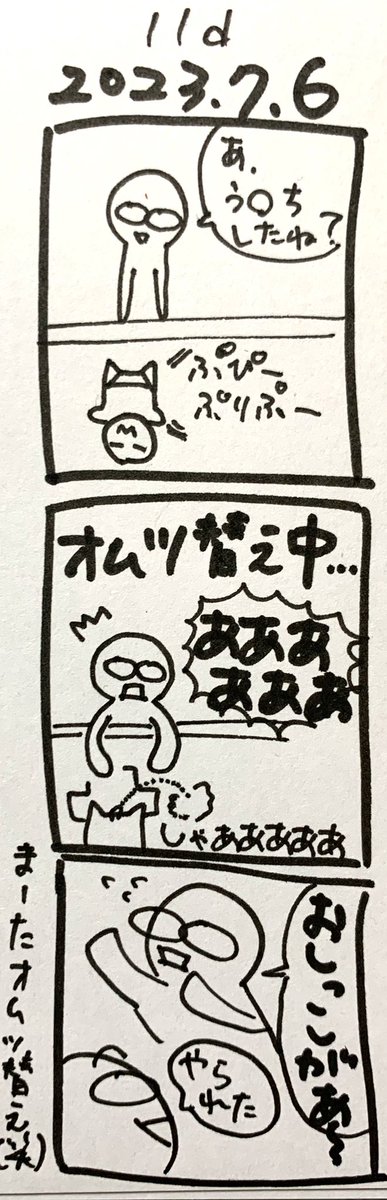 11d
2023.7.6
あ、
う〇ち
したね?
ぷぴー
ぷりぷー
オムツ替え中...
あああ
あああ
しゃああああああ
おしっこがあ〜
やら
れた
まーたオムツ替え(涙)